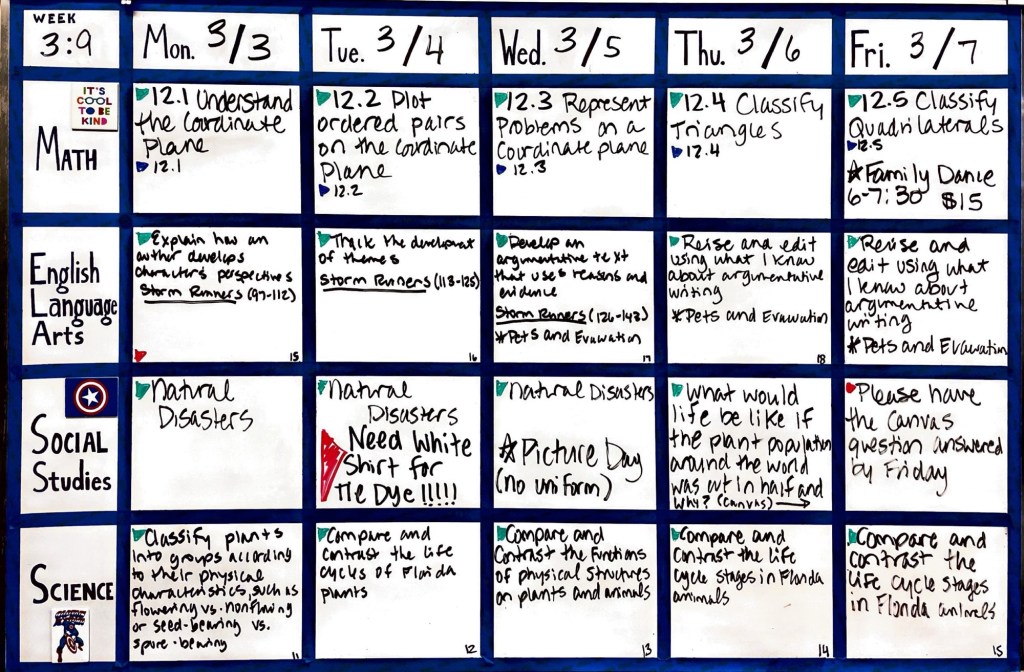 WEEK
3:9
Mon. 3/3
Tue. 3/4
Wed. 3/5
Thu. 3/6
Fri. 3/7
IT'S
COOL
TO BE
KIND
MATH
12.1 Understand
the Coordinate
Plane
12.1
12.2 Plot
ordered pairs
on the coordinate
Plane
12.2
12.3 Represent
Problems on a
Coordinate plane
12.3
12.4 Classify
Triangles
12.4
12.5 Classify
Quadrilaterals
12.5
*Family Dance
6-7:30 $15
English
Language
Arts
Explain how an
author develops
characters perspectives
Storm Runners (97-112)
15
Track the development
of themes
Storm Runners (113-125)
16
Develop an
argumentative text
that uses reasons and
evidence
Storm Runners (126-143)
*Pets and Evacuation
17
Revise and edit
using what I know
about argumentative
writing
*Pets and Evacuation
18
Revise and
edit using what
I know about
argumentative
writing
*Pets and Evacuation
SOCIAL
Studies
Natural
Disasters
Natural
Disasters
Need White
Shirt for
Tie Dye !!!!!
Natural Disasters
*Picture Day
(no uniform)
What would
life be like if
the plant population
around the world
was cut in half and
why? (Canvas) →
Please have
the Canvas
question answered
by Friday
SCIENCE
Classify plants
into groups according
to their physical
characteristics, such as
flowering vs. nonflowering
or seed-bearing vs.
spore-bearing
11
Compare and
contrast the life
cycles of Florida
plants
12
Compare and
Contrast the functions
of physical structures
on plants and animals
13
Compare and
contrast the life
cycle stages in Florida
animals
14
Compare and
contrast the
life cycle stages
in Florida animals
15